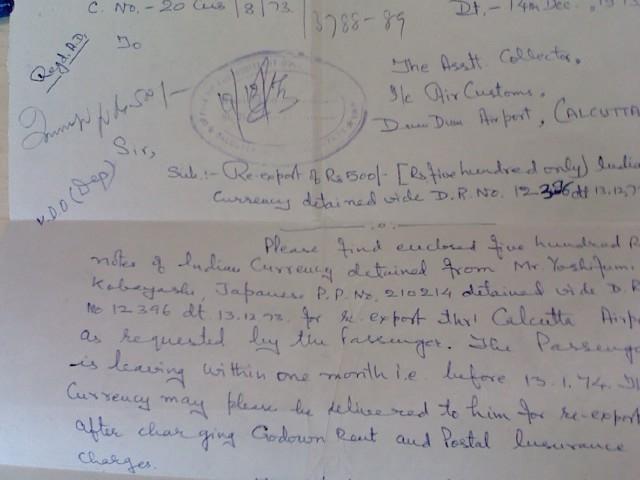 C. No. - 20 Cus / 8 / 73
3788 - 89
Dt. - 14th Dec.
Regd. A.D.
To
The Asstt. Collector,
I/c Air Customs,
Dum Dum Airport, CALCUTTA
Rs 500/-
Sir,
Sub:- Re-export of Rs 500/- [Rs. five hundred only) India
Currency detained vide D.R. No. 12396 dt 13.12.7
Please find enclosed five hundred R
notes of Indian Currency detained from Mr. Yoshifumi
Kobayashi, Japanese P.P. No. 210214 detained vide D.R
No 12396 dt. 13.12.73. for re-export thr' Calcutta Airp
as requested by the Passenger. The Passeng
is leaving within one month i.e. before 13.1.74. Th
Currency may please be delivered to him for re-export
after charging Godown Rent and Postal Insurance
Charges.